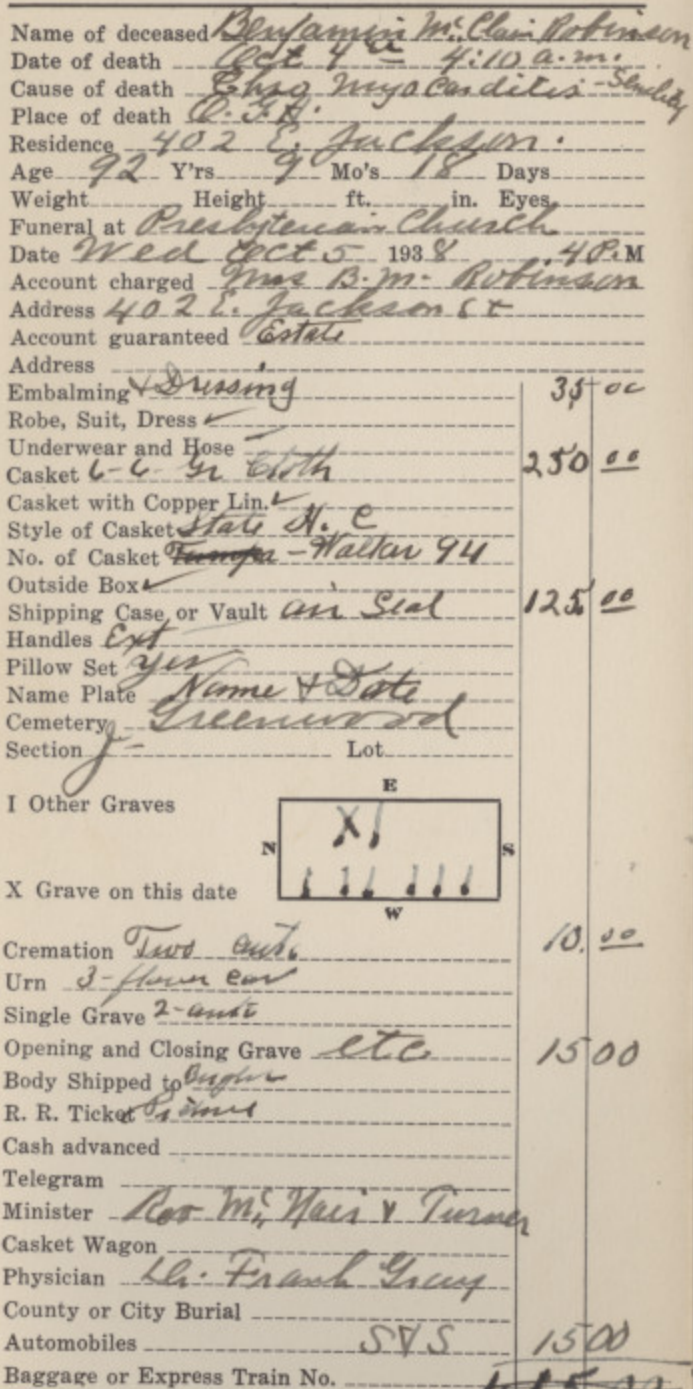 Name of deceased Benjamin Mc. Clain Robinson
Date of death Oct 4th 4:10 a.m.
Cause of death Chro Myocarditis - Senility
Place of death O. G. H.
Residence 402 E. Jackson.
Age 92 Y'rs 9 Mo's 18 Days
Weight Height ft. in. Eyes
Funeral at Presbyterian Church
Date Wed Oct 5 1938 4 P.M
Account charged Mrs B. M. Robinson
Address 402 E. Jackson St
Account guaranteed Estate
Address
Embalming & Dressing 35 00
Robe, Suit, Dress ✓
Underwear and Hose
Casket 6-6 Gr Cloth 250 00
Casket with Copper Lin. ✓
Style of Casket State H. C
No. of Casket - Walker 94
Outside Box ✓
Shipping Case or Vault air Seal 125 00
Handles Ext
Pillow Set yes
Name Plate Name & Date
Cemetery Greenwood
Section J - Lot
E
I Other Graves
N X S
X Grave on this date
W
Cremation Two 10. 00
Urn 3 - flower car
Single Grave 2 -
Opening and Closing Grave etc 15 00
Body Shipped to
R. R. Ticket
Cash advanced
Telegram
Minister Mc Nair & Turner
Casket Wagon
Physician Dr. Frank Gray
County or City Burial
Automobiles S & S 15 00
Baggage or Express Train No.